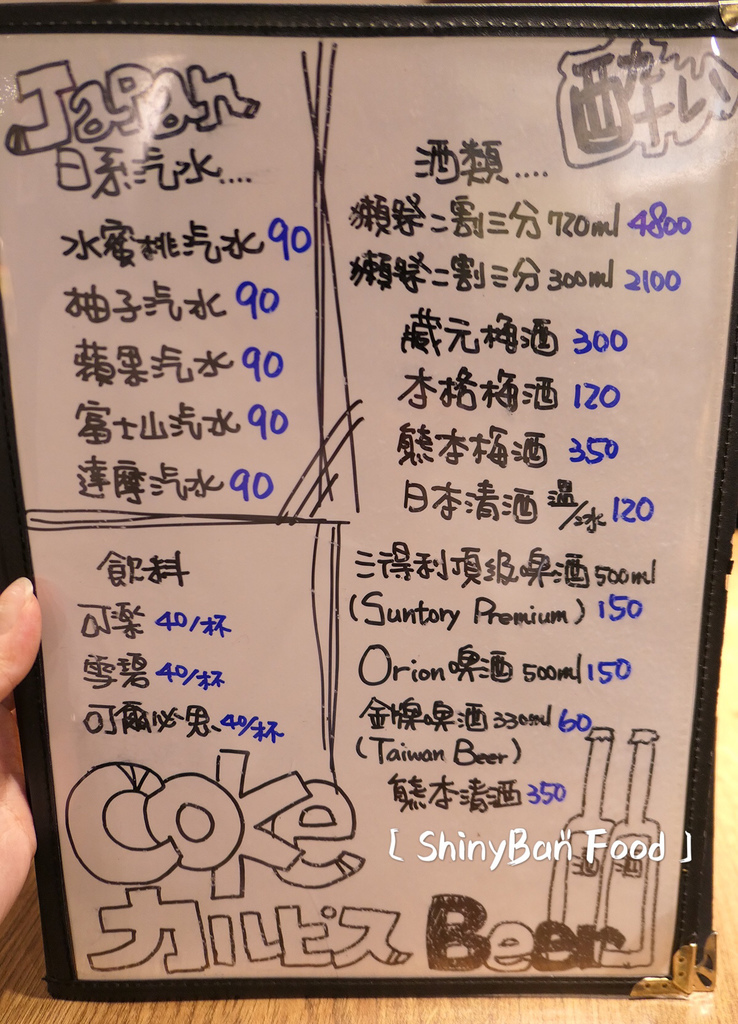 Japan
日系汽水....
水蜜桃汽水 90
柚子汽水 90
蘋果汽水 90
富士山汽水 90
達摩汽水 90
飲料
可樂 40/杯
雪碧 40/杯
可爾必思 40/杯
Coke
カルピス
酒類....
獺祭二割三分 720ml 4800
獺祭二割三分 300ml 2100
蔵元梅酒 300
本格梅酒 120
熊本梅酒 350
日本清酒 溫/冰 120
三得利頂級啤酒 500ml
(Suntory Premium) 150
Orion啤酒 500ml 150
金牌啤酒 330ml 60
(Taiwan Beer)
熊本清酒 350
[ ShinyBan Food ]
酒 酒
Beer